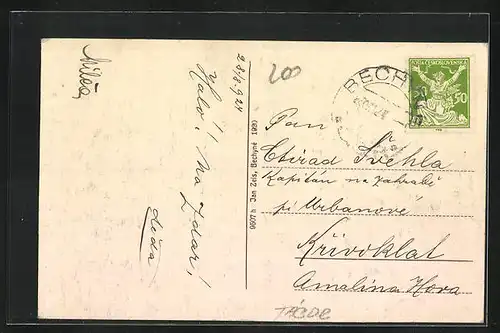 Miloš
28/8 924
Haló! Na Zdar!
Léďa
9607 h Jan Zeis, Bechyně 1920
200
BECH
POŠTA ČESKOSLOVENSKÁ
50 50
Pan
Ctirad Švehla
Kapitán na zahradě
pí Urbanové
Křivoklat
Amalina Hora